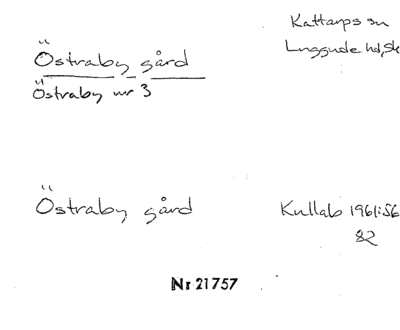 Östraby gård
Östraby nr 3
Kattarps sn
Luggude hd, Sk
Östraby gård
Kullab 1961:56
82
Nr 21757